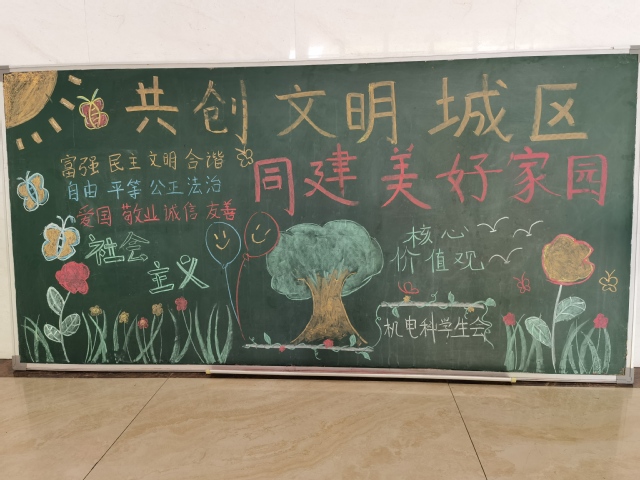 共创文明城区
同建美好家园
富强 民主 文明 合谐
自由 平等 公正 法治
爱国 敬业 诚信 友善
社会
主义
核心
价值观
机电科学生会